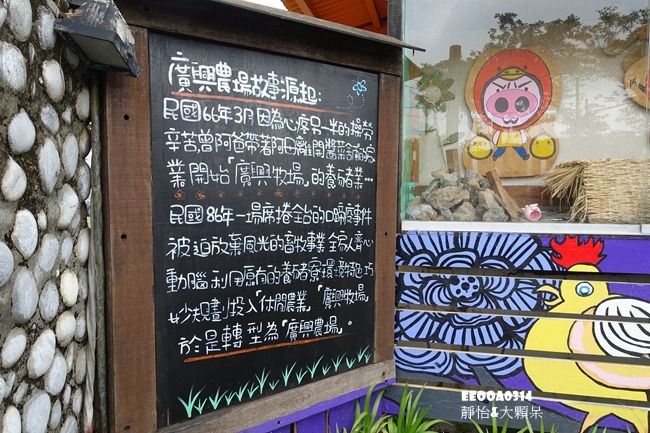 廣興農場故事源起:
民國66年3月因為心疼另一半的操勞
辛苦曾阿爸帶著 離開醬菜 的
業開始「廣興牧場」的養豬業…
民國86年一場席捲全台的口蹄疫事件
被迫放棄風光的畜牧事業全家人齊心
動腦利用原有的養豬寮環境特色巧
妙規劃投入「休閒農業」「廣興牧場」
於是轉型為「廣興農場」。
EEOOA0314
靜怡&大顆呆